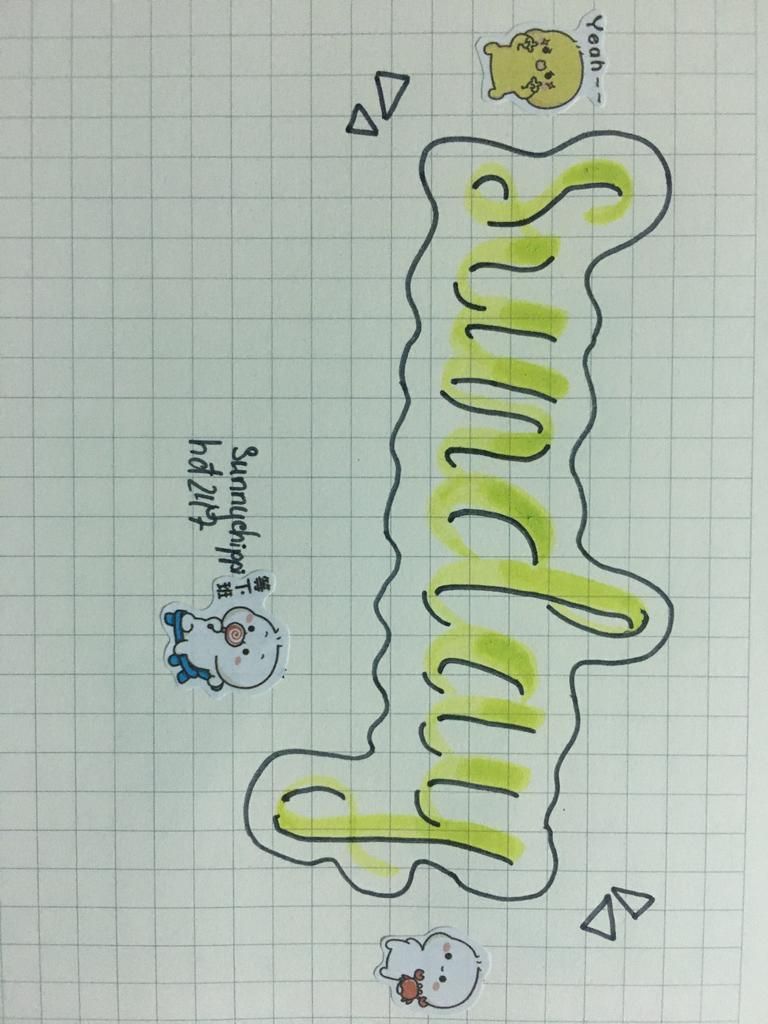 Yeah~~
Sunday
Sunnychippi
hđ 21/7
等下班